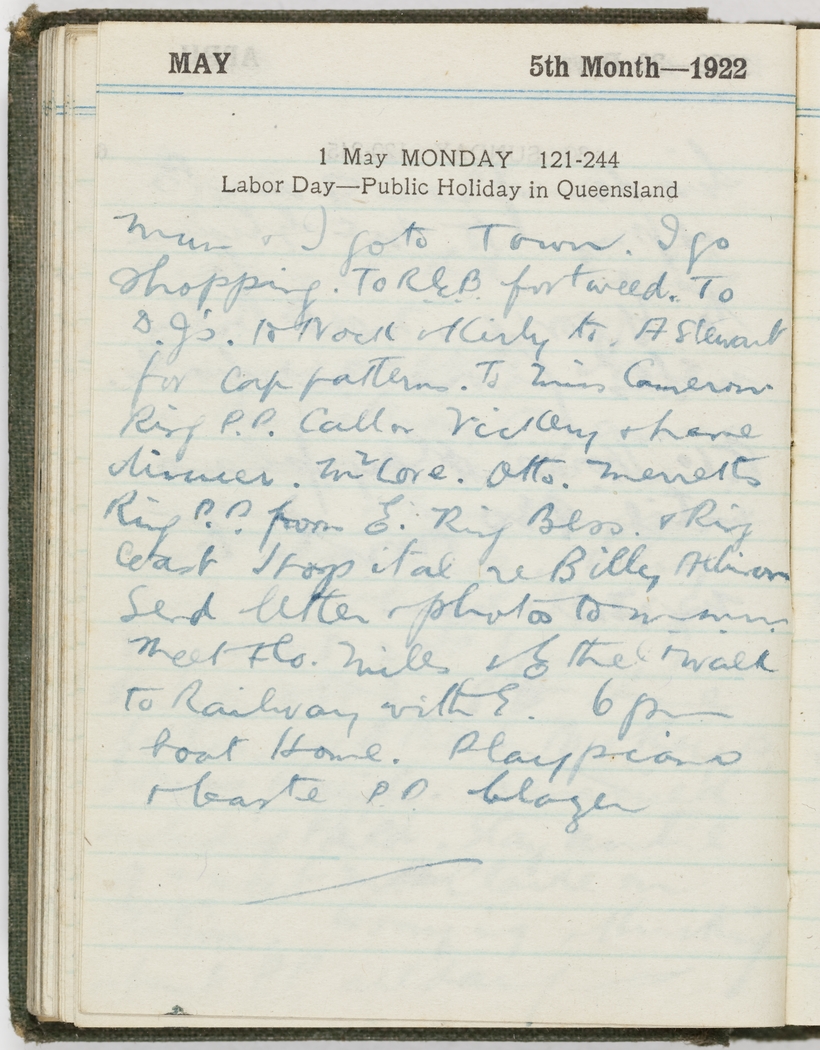 MAY 5th Month—1922
1 May MONDAY 121-244
Labor Day—Public Holiday in Queensland
Mum & I go to Town. I go
shopping. To R.& B. for tweed. To
D.J's. to & Kirby to. A Stewart
for Cap patterns. To Miss Cameron
Ring P.P. Call on Vickery & have
dinner. Mr Love. Otto. Merretts
Ring P.P. from E. Ring Bess. & Ring
Coast Hospital re Billy
Send letter & photos to
Meet Flo. Mills & E the walk
to Railway with E. 6 pm
boat Home. Play piano
& baste P.P. blazer